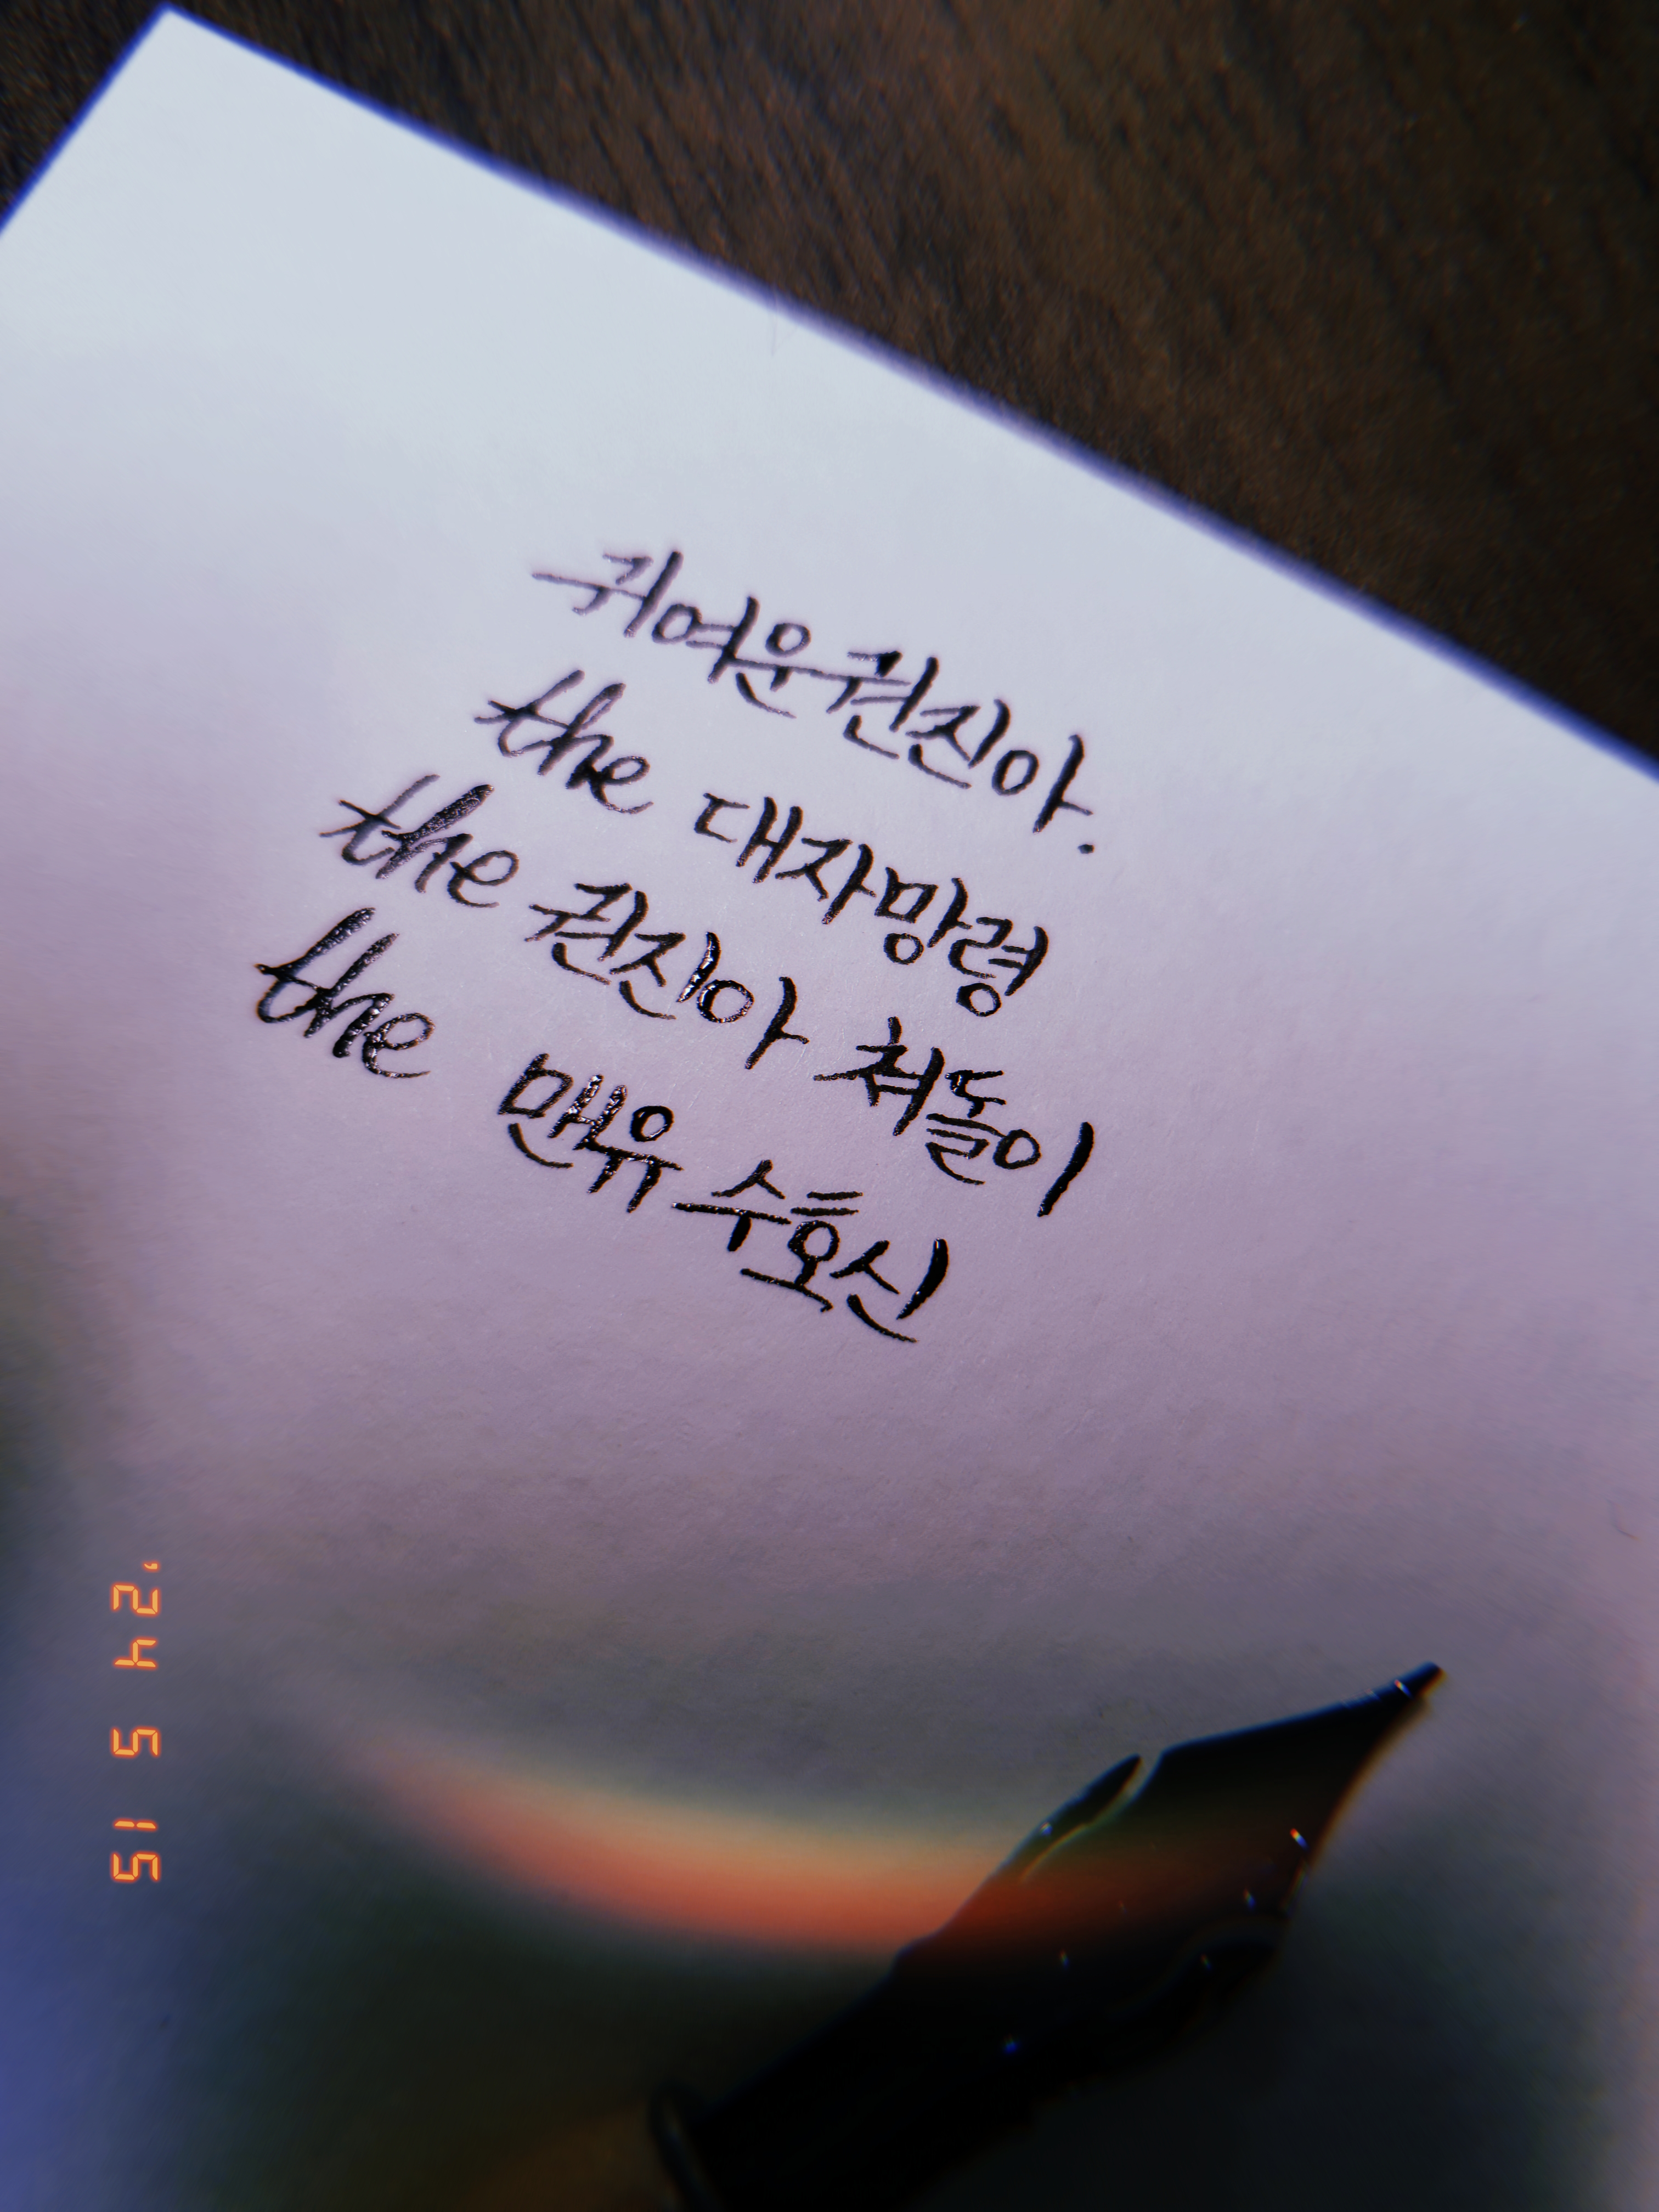 귀여운권진아.
the 대자망령
the 권진아 쳐돌이
the 맨유 수호신
'24 5 15